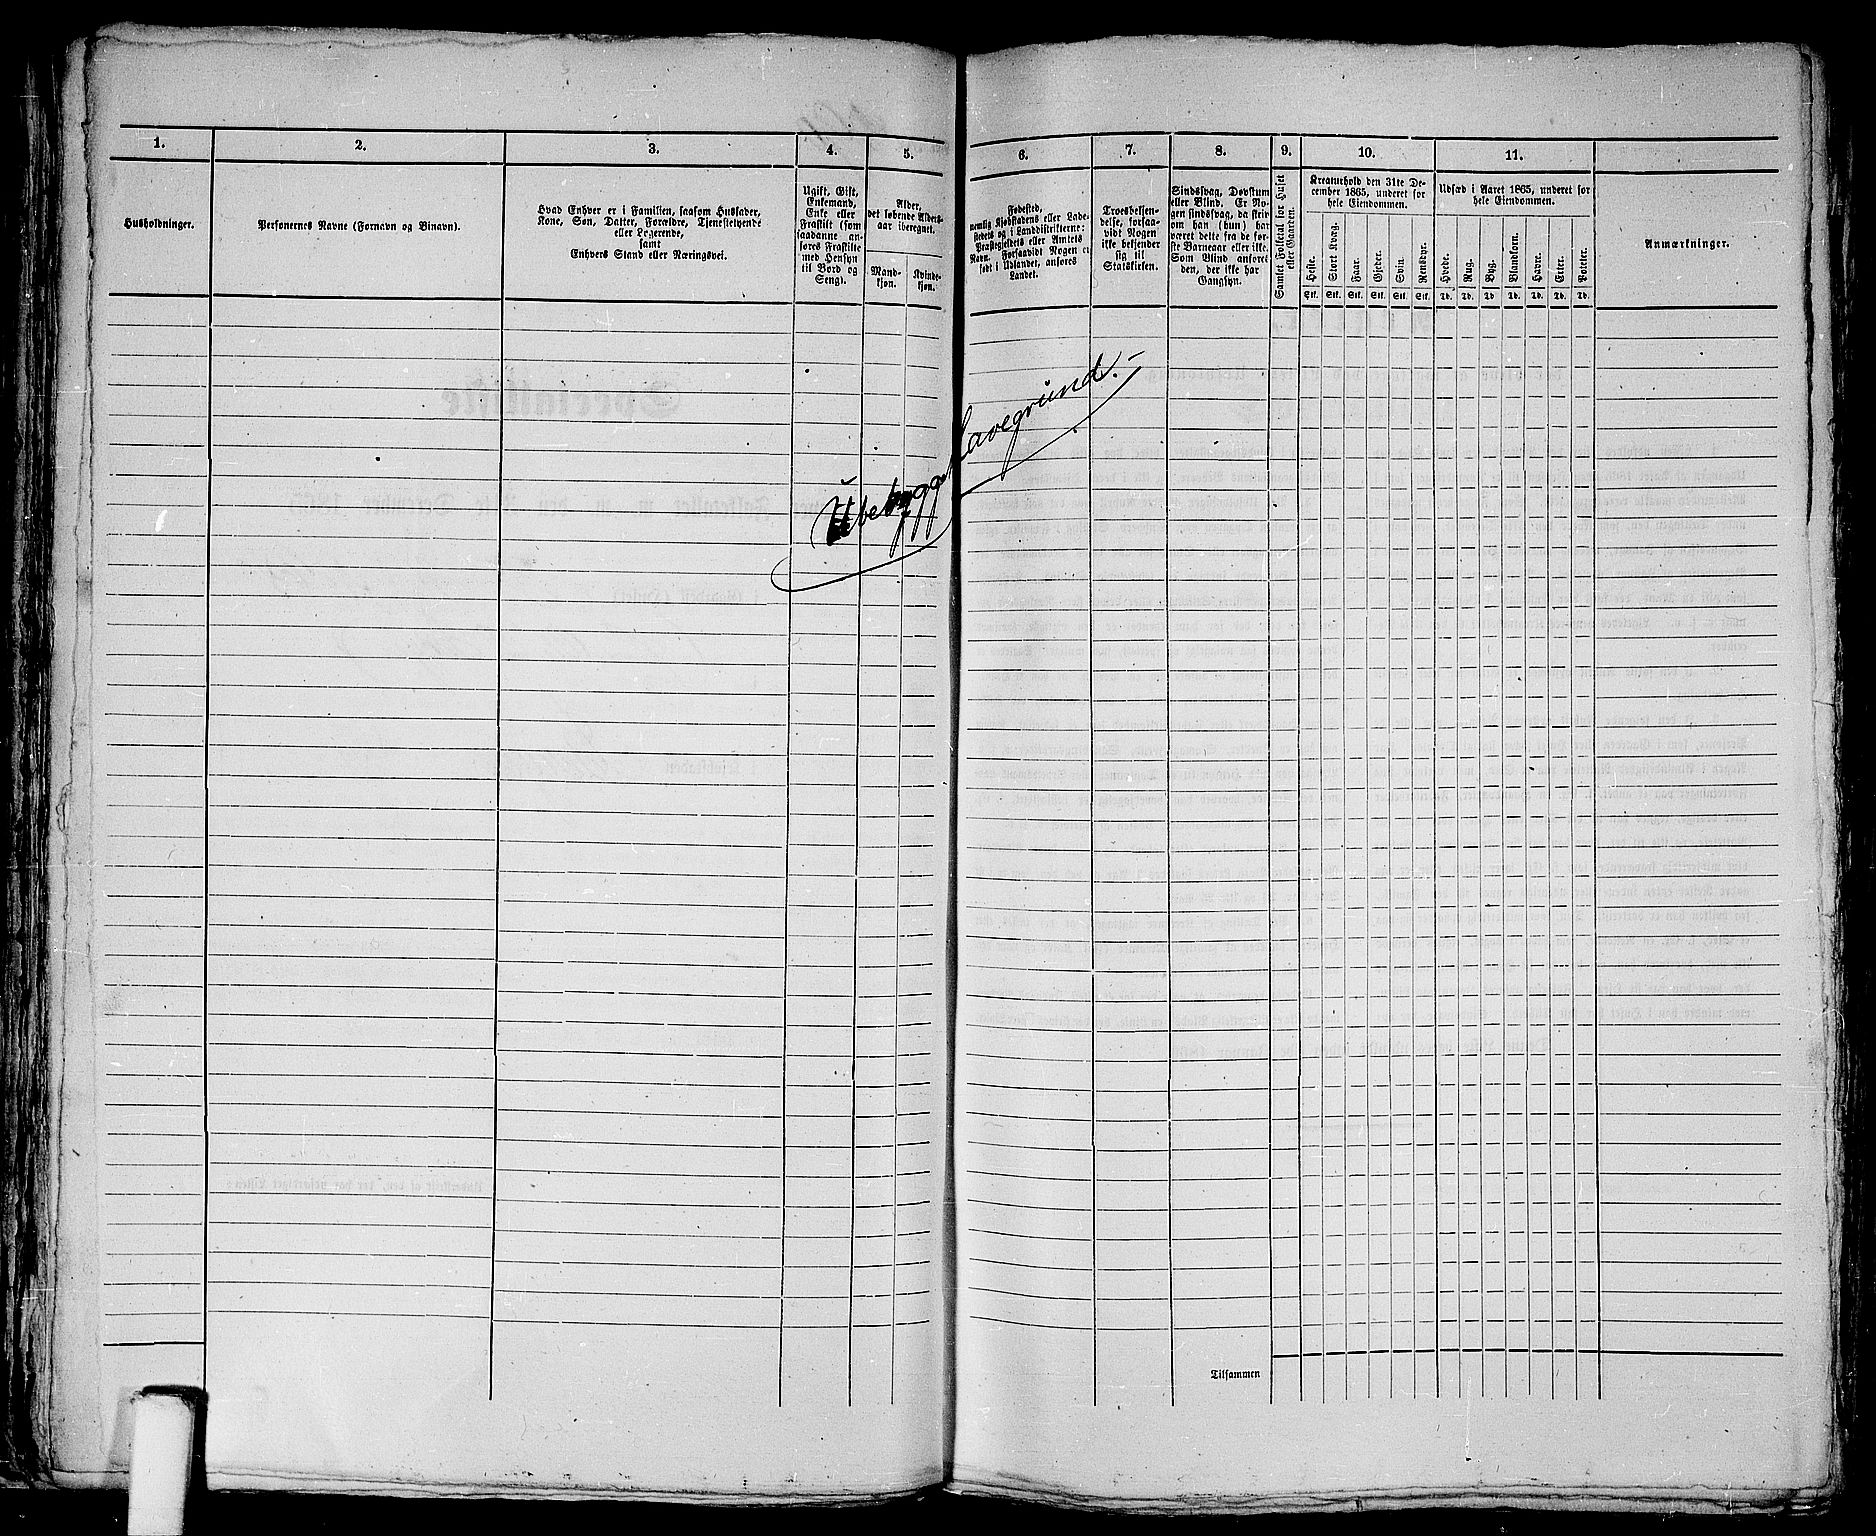 1.
2.
3.
4.
5.
6.
7.
8.
9.
10.
11.
Husholdninger.
Personernes Navne (Fornavn og Binavn).
Hvad Enhver er i Familien, saasom Husfader,
Kone, Søn, Datter, Forældre, Tjenestetyende
eller Logerende,
samt
Enhvers Stand eller Næringsvei.
Ugift, Gift,
Enkemand,
Enke eller
Fraskilt (som
saadanne an-
føres Fraskilte
med Hensyn
til Bord og
Seng).
Alder,
det løbende Alders-
aar iberegnet.
Mand-
kjøn.
Kvinde-
kjøn.
Fødested,
nemlig Kjøbstadens eller Lade-
stedets og i Landdistrikterne:
Præstegjeldets eller Amtets
Navn. Forsaavidt Nogen er
født i Udlandet, anføres
Landet.
Troesbekjen-
delse, forsaa-
vidt Nogen
ikke bekjender
sig til
Statskirken.
Sindssvag, Døvstum
eller Blind. Er No-
gen sindssvag, da skriv
om han (hun) har
været dette fra de før-
ste Barneaar eller ikke.
Som Blind anføres
den, der ikke har
Gangsyn.
Samlet Folketal for Huset
eller Gaarden.
Kreaturhold den 31te De-
cember 1865, underet for
hele Eiendommen.
Heste.
Stort Kvæg.
Faar.
Gjeder.
Svin.
Rensdyr.
Stk. Stk. Stk. Stk. Stk. Stk.
Udsæd i Aaret 1865, underet for
hele Eiendommen.
Hvede.
Rug.
Byg.
Blandkorn.
Havre.
Erter.
Poteter.
Td. Td. Td. Td. Td. Td. Td.
Anmærkninger.
Ubebygget Havegrund.
Tilsammen